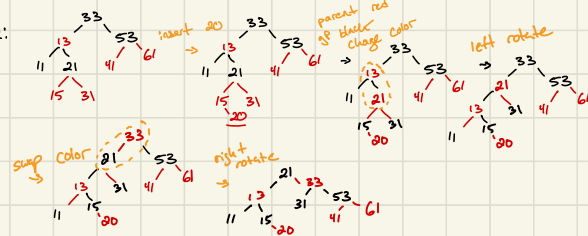 33
13 53
11 21 41 61
15 31
insert 20
→
33
13 53
11 21 41 61
15 31
20
parent red
gp black
change color
→
33
13 53
11 21 41 61
15 31
20
left rotate
→
33
21 53
13 31 41 61
11 15
20
swap color
→
33
21 53
13 31 41 61
11 15
20
right
rotate
→
21
13 33
11 15 31 53
20 41 61